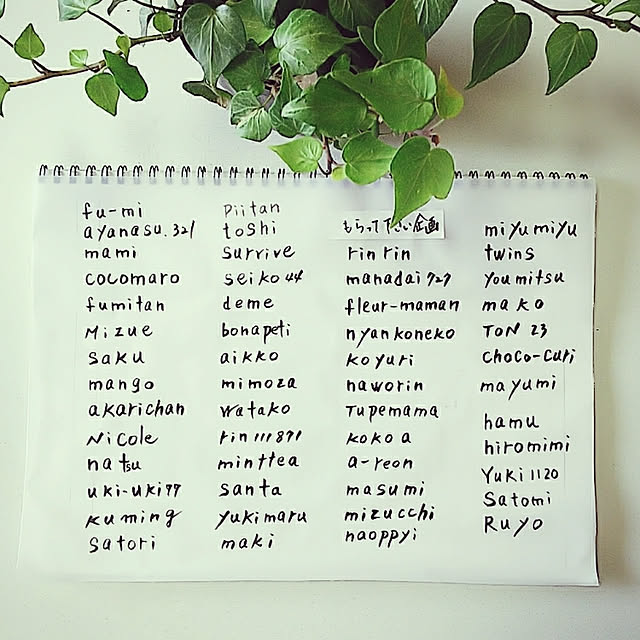 fu-mi
ayanasu.321
mami
cocomaro
fumitan
Mizue
saku
mango
akarichan
Nicole
natsu
uki-uki77
kuming
satori
piitan
toshi
survive
seiko44
deme
bonapeti
aikko
mimoza
watako
rin111871
minttea
santa
yukimaru
maki
もらって下さい企画
rinrin
manadai727
fleur-maman
nyankoneko
koyuri
naworin
Tupemama
kokoa
a-reon
masumi
mizucchi
naoppyi
miyumiyu
twins
youmitsu
mako
TON 23
choco-curi
mayumi
hamu
hiromimi
Yuki1120
Satomi
Ruyo